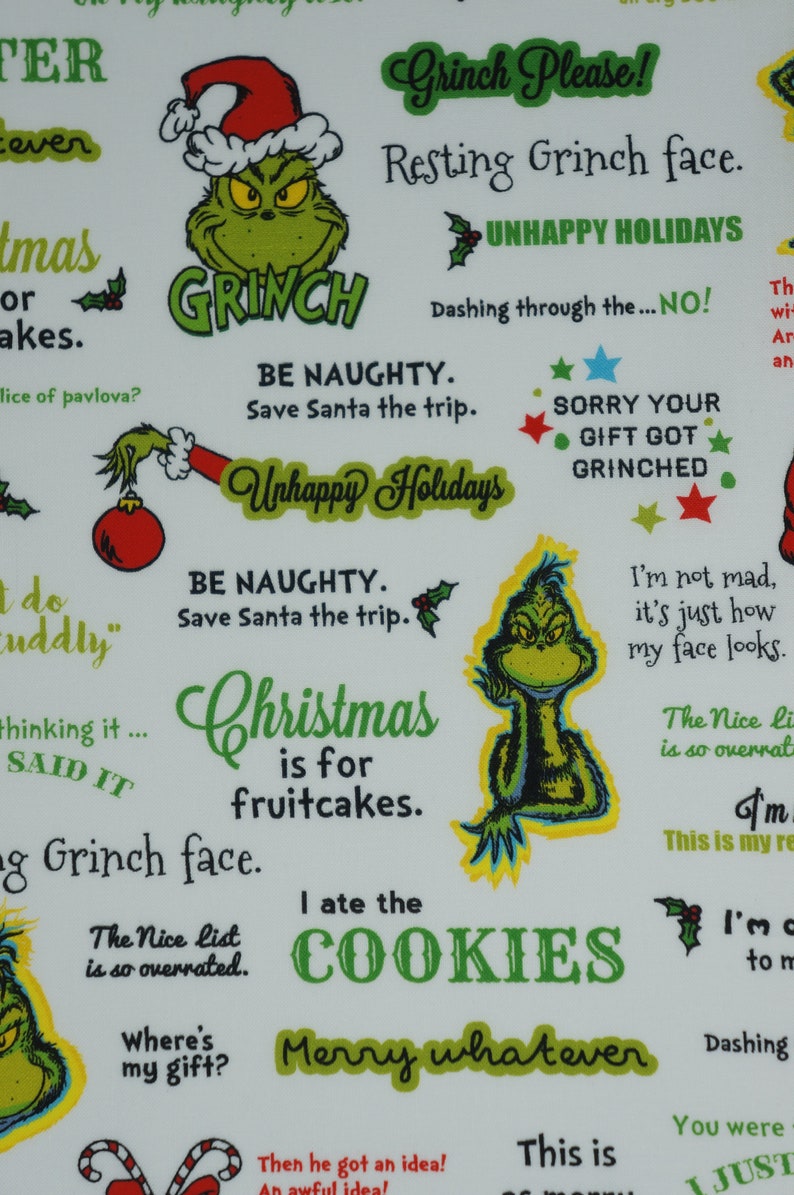 TER
Grinch Please!
tever
Resting Grinch face.
GRINCH
UNHAPPY HOLIDAYS
tmas
or
akes.
Dashing through the...NO!
Th
wit
Ar
an
BE NAUGHTY.
Save Santa the trip.
lice of pavlova?
SORRY YOUR
GIFT GOT
GRINCHED
Unhappy Holidays
BE NAUGHTY.
Save Santa the trip.
I'm not mad,
it's just how
my face looks.
t do
cuddly"
Christmas
is for
fruitcakes.
thinking it ...
SAID IT
The Nice Li
is so overrate
I'm
This is my re
ng Grinch face.
I ate the
COOKIES
The Nice List
is so overrated.
I'm
to m
Where's
my gift?
Merry whatever
Dashing
You were
I JUST
Then he got an idea!
An awful idea!
This is
as merry